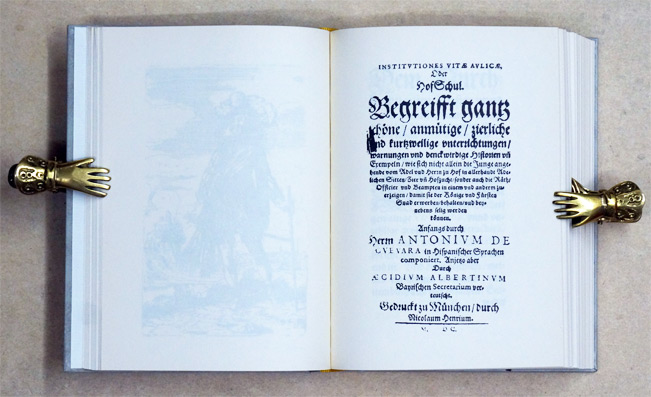 INSTITVTIONES VITÆ AVLICÆ,
Oder
HofSchul.
Begreifft gantz
schöne / anmütige / zierliche
vnd kurtzweilige vnterrichtungen /
warnungen vnd denckwirdige Historien vñ
Exempeln / wie sich nicht allein die Junge ange-
hende vom Adel vnd Herrn zu Hof in allerhande Ade-
lichen Sitten / Zier vñ Hofzucht / sonder auch die Räth /
Officier vnd Beampten in einem vnd anderm zu-
erzeigen / damit sie der Könige vnd Fürsten
Gnad erwerben / behalten / vnd der-
nebens selig werden
können.
Anfangs durch
Herrn ANTONIVM DE
GVEVARA in Hispanischer Sprachen
componiert. Anjetzo aber
Durch
ÆGIDIVM ALBERTINVM
Bayrischen Secretarium ver-
teutscht.
Gedruckt zu München / durch
Nicolaum Henricum.